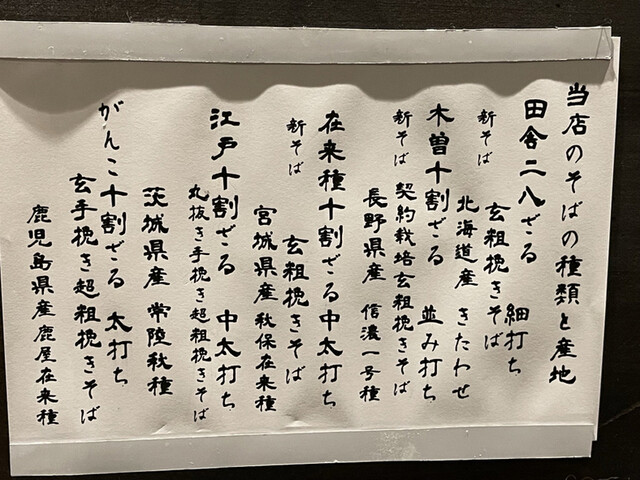 当店のそばの種類と産地
田舎二八ざる 細打ち
新そば 玄粗挽きそば
北海道産 きたわせ
木曽十割ざる 並み打ち
新そば 契約栽培玄粗挽きそば
長野県産 信濃一号種
在来種十割ざる中太打ち
新そば 玄粗挽きそば
宮城県産 秋保在来種
江戸十割ざる 中太打ち
丸抜き手挽き超粗挽きそば
茨城県産 常陸秋種
がんこ十割ざる 太打ち
玄手挽き超粗挽きそば
鹿児島県産鹿屋在来種